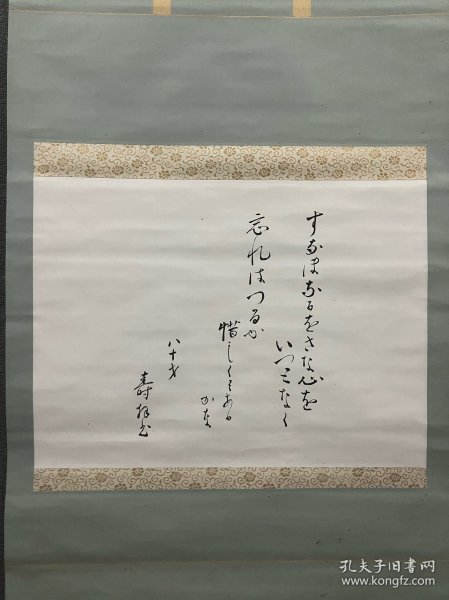 すなほなるをさな心を
いつとなく
忘れはつるが
惜しくもある
かな
八十才
壽
書
孔夫子旧书网
www.kongfz.com